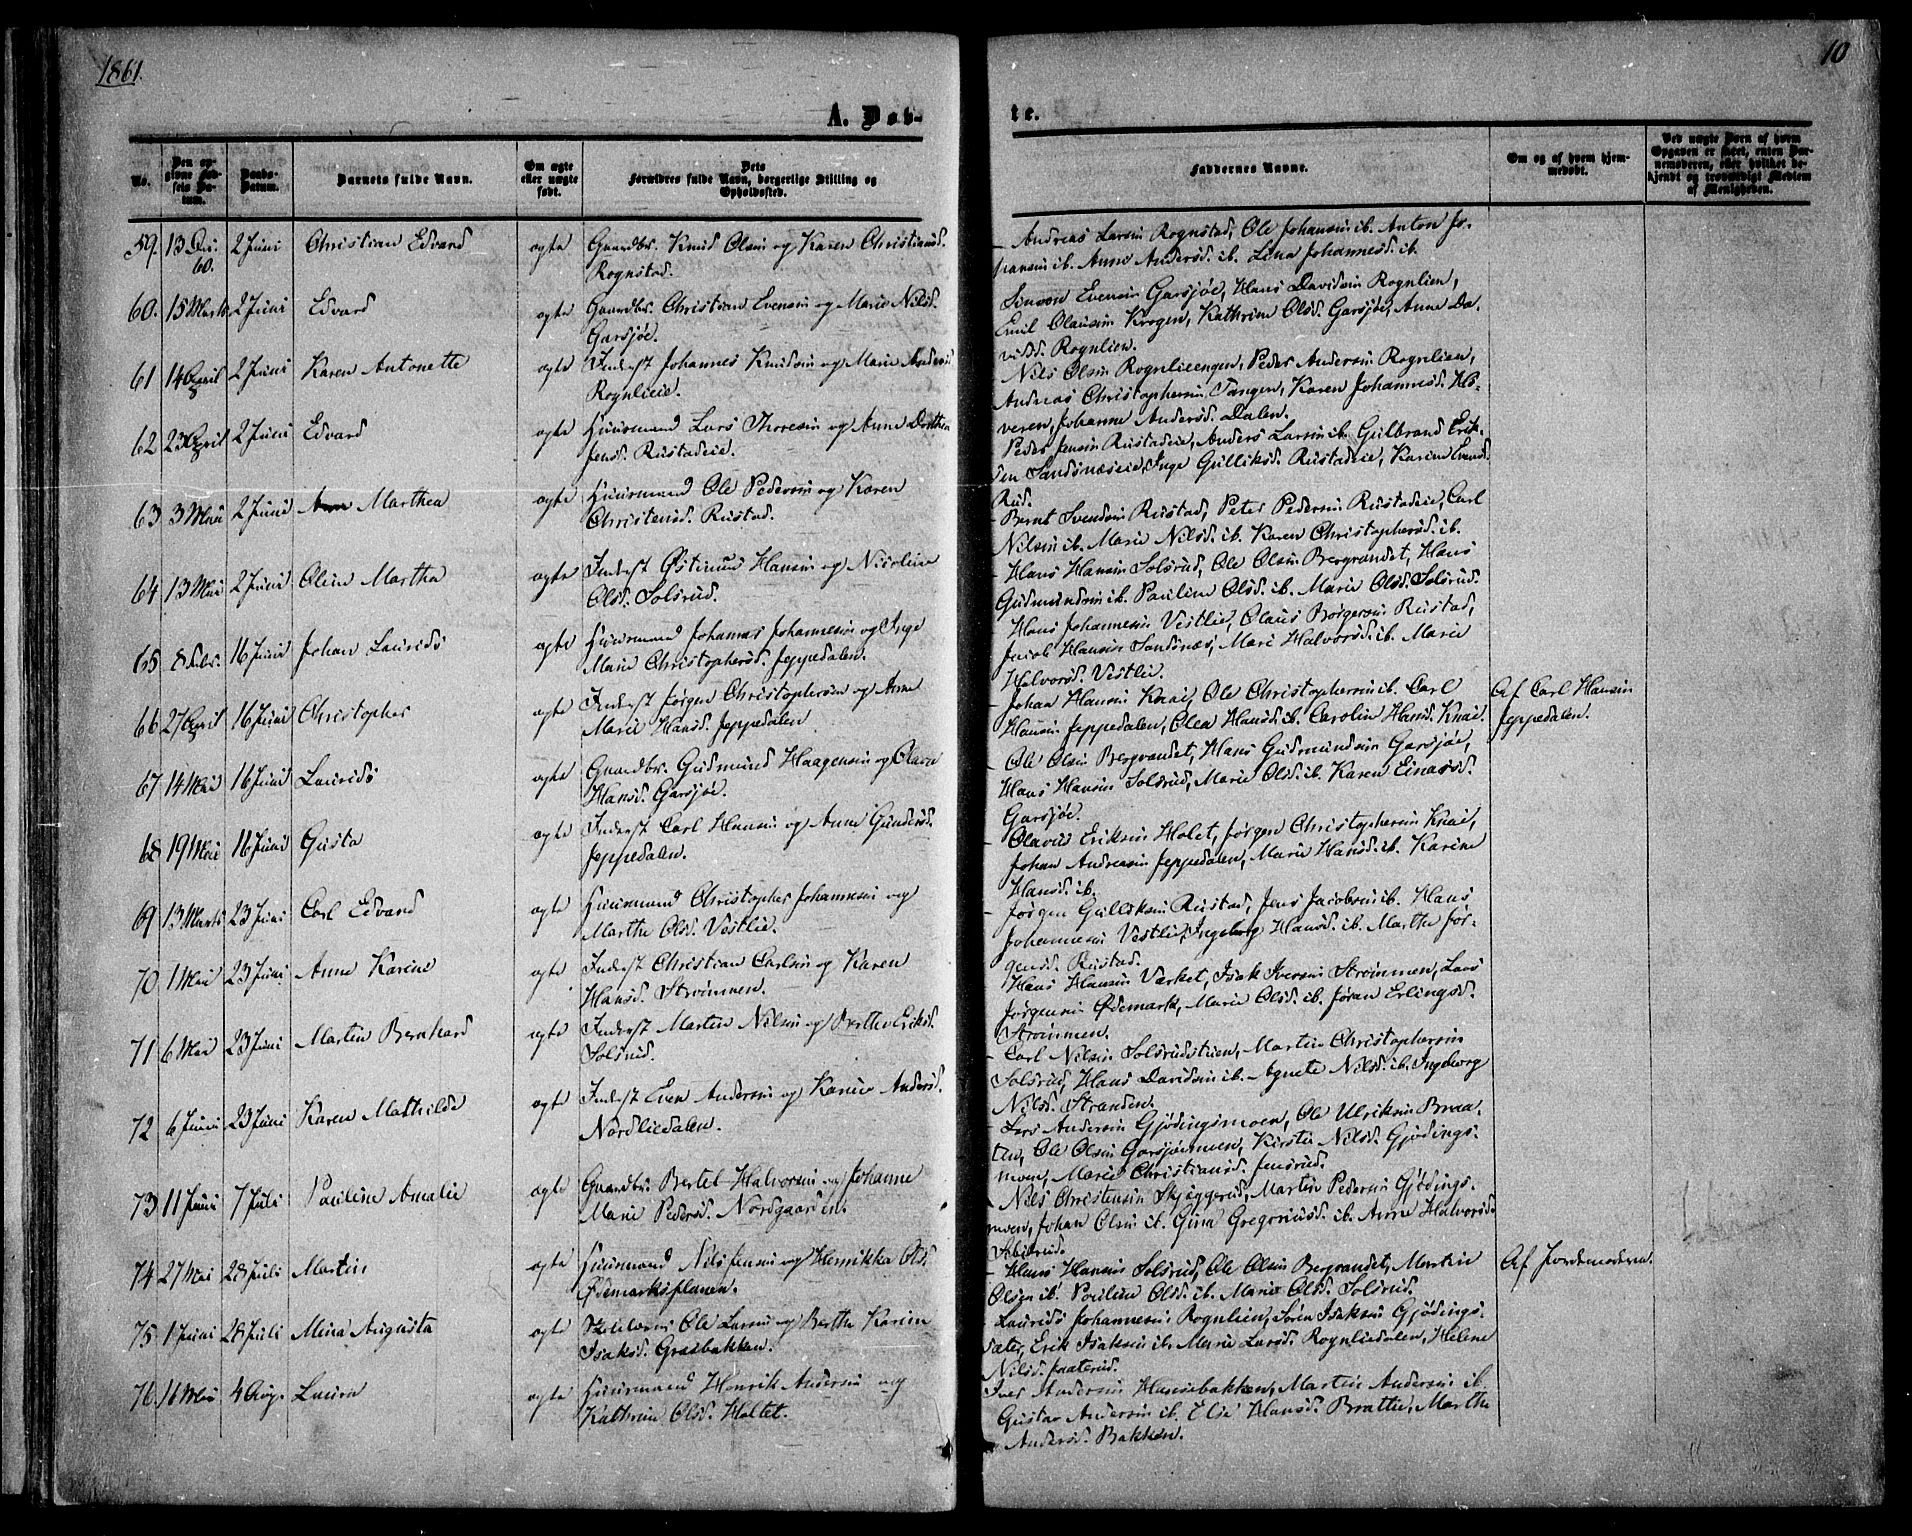 1861.
10
A. Døb-
te.
No.
Den op-
givne Fød-
sels Da-
tum.
Daabs-
Datum.
Barnets fulde Navn.
Om ægte
eller uægte
født.
Dets
Forældres fulde Navn, borgerlige Stilling og
Opholdssted.
Faddernes Navne.
Om og af hvem hjem-
medøbt.
Ved uægte Børn af hvem
Opgaven er skeet, enten Bar-
nemoderen, eller hvilket be-
kjendt og troværdigt Medlem
af Menigheden.
59. 13 60. 2 Juni Christian Edvard ægte Gaardbr. Knud Olsen og Karen Christiansd.
Rognstad.
Andreas Larsen Rognstad, Ole Johansen ib. Anton Jo-
hansen ib. Anne Andersd. ib. Lina Johannesd. ib.
60. 15 Marts 2 Juni Edvard ægte Gaardbr. Christian Evensen og Marie Nilsd.
Garsjøe.
Simon Evensen Garsjøe, Hans Davidsen Rognlien,
Emil Olausen Krogen, Kathrine Olsd. Garsjøe, Anne Da-
vidsd. Rognlien.
61 14 April 2 Juni Karen Antonette ægte Inderst Johannes Knudsen og Marie Andersd.
Rognlieie.
Nils Olsen Rognlieengen, Peder Andersen Rognlien,
Andreas Christophersen Tangen, Karen Johannesd. Ho-
veren, Johanne Andersd. Dalen.
62 23 April 2 Juni Edvard ægte Huusmand Lars Thoresen og Anne Dorthea
Jensd. Rustadeie.
Peder Jensen Rustadeie, Anders Larsen ib. Gulbrand Erik-
sen Sandsnæseie, Inge Gulliksd. Rustadeie, Karine Evensd.
Rud.
63 3 Mai 2 Juni Marthea ægte Huusmand Ole Pedersen og Karen
Christensd. Rustad.
Bernt Svendsen Rustad, Peter Pedersen Rustadeie, Carl
Nilsen ib. Marie Nilsd. ib. Karen Christophersd. ib.
64 13 Mai 2 Juni Oline Martha ægte Inderst Østmund Hansen og Nicoline
Olsd. Solsrud.
Hans Hansen Solsrud, Ole Olsen Bergvandet, Hans
Gudmundsen ib. Pauline Olsd. ib. Marie Olsd. Solsrud.
65 8 Febr. 16 Juni Johan Laurids ægte Huusmand Johannes Johannesen og Inge
Marie Christophersd. Jeppedalen.
Hans Johannesen Vestlie, Olaus Børgersen Rustad,
Jacob Hansen Sandsnæs, Mari Halvorsd. ib. Marie
Halvorsd. Vestlie.
66 27 April 16 Juni Christopher ægte Inderst Jørgen Christophersen og Anne
Marie Hansd. Jeppedalen
Johan Hansen Knai, Ole Christophersen ib. Carl
Hansen Jeppedalen, Olea Hansd. ib. Caroline Hansd. Knai.
Af Carl Hansen
Jeppedalen.
67 14 Mai 16 Juni Laurids ægte Gaardbr. Gudmund Haagensen og Olava
Hansd. Garsjøe.
Ole Olsen Bergvandet, Hans Gudmundsen Garsjøe,
Hans Hansen Solsrud, Marie Olsd. ib. Karen Einarsd.
Garsjøe.
68 19 Mai 16 Juni Gusta ægte Inderst Carl Hansen og Anne Gundersd.
Jeppedalen.
Olavus Eriksen Holet, Jørgen Christophersen Knai,
Johan Andreasen Jeppedalen, Marie Hansd. ib. Karine
Hansd. ib.
69 13 Marts 23 Juni Carl Edvard ægte Huusmand Christopher Johannesen og
Marthe Olsd. Vestlie.
Jørgen Gulliksen Rustad, Jens Jacobsen ib. Hans
Johannesen Vestlie, Ingeborg Hansd. ib. Marthe Jør-
gensd. Rustad.
70 1 Mai 23 Juni Anne Karine ægte Inderst Christian Carlsen og Karen
Hansd. Strømmen.
Hans Hansen Værket, Isak Iversen Strømmen, Lars
Jørgensen Ødemark, Marie Olsd. ib. Jøran Erlingsd.
Strømmen.
71 6 Mai 23 Juni Martin Bernhard ægte Inderst Martin Nilsen og Berthe Eriksd.
Solsrud.
Carl Nilsen Solsrudstuen, Martin Christophersen
Solsrud, Hans Davidsen ib. Agnete Nilsd. ib. Ingeborg
Nilsd. Stranden.
72 6 Juni 23 Juni Karen Mathilde ægte Inderst Even Andersen og Karine Andersd.
Nordliedalen.
Lars Andersen Gjødingsmoen, Ole Ulriksen Braa-
ten, Ole Olsen Garsjøemoen, Kirstie Nilsd. Gjødings-
moen, Marie Christiansd. Jensrud.
73 11 Juni 7 Juli Pauline Amalie ægte Gaardbr. Bertel Halvorsen og Johanne
Marie Pedersd. Nordgaarden.
Nils Christensen Skjæggerud, Martin Pedersen Gjødings-
moen, Johan Olsen ib. Gina Gregoriusd. ib. Anne Halvorsd.
74 27 Mai 28 Juli Martin ægte Huusmand Nils Jensen og Henrikka Olsd.
Ødemarksplanen.
Hans Hansen Solsrud, Ole Olsen Bergvandet, Martin
Olsen ib. Pauline Olsd. ib. Marie Olsd. Solsrud.
Af Jordemoderen.
75. 1 Juni 28 Juli Mina Augusta ægte Skolelærer Ole Larsen og Berthe Karine
Isaksd. Græsbakken.
Laurids Johannesen Rognlien, Søren Isaksen Gjødings-
sæter, Erik Isaksen ib. Marie Larsd. Rognliedalen, Helene
Nilsd. Kaaterud.
76. 16 Mai 4 Aug. Laura ægte Huusmand Henrik Andersen og
Kathrine Olsd. Holtet.
Iver Andersen Hansebakken, Martin Andersen ib.
Gustav Andersen ib. Else Hansd. Brattie, Marthe
Andersd. Bakken.